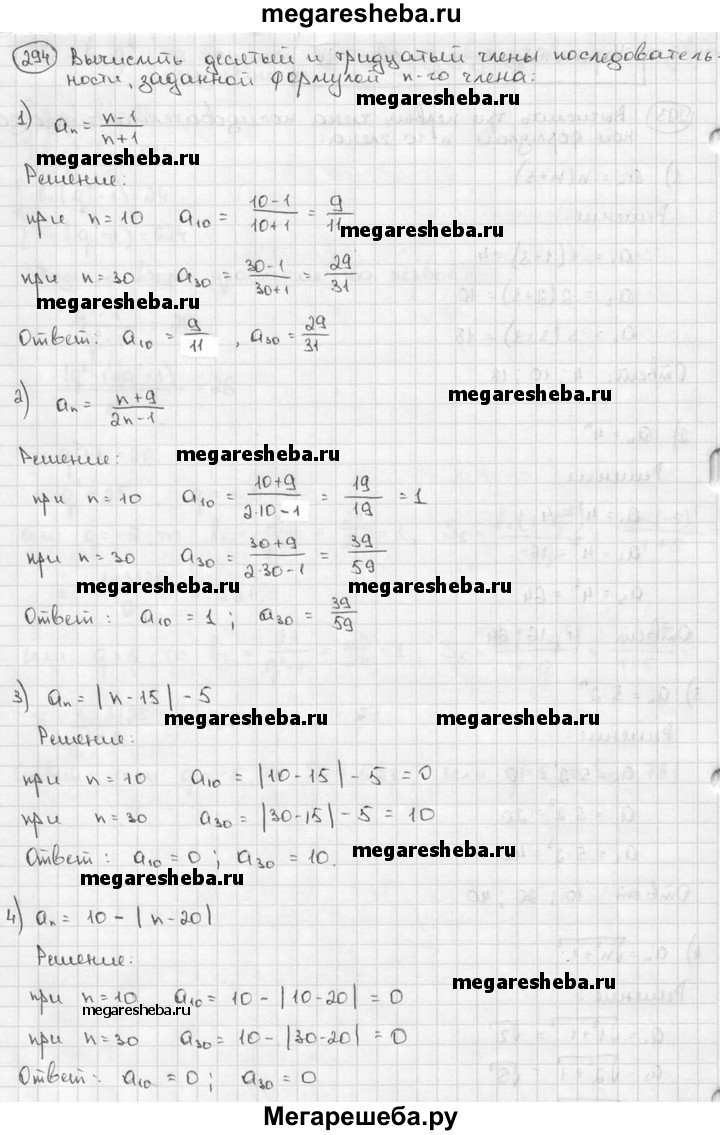 megaresheba.ru
294 Вычислить десятый и тридцатый члены последователь-
ности, заданной формулой n-го члена:
megaresheba.ru
1) aₙ = (n-1)/(n+1)
megaresheba.ru
Решение:
при n = 10 a₁₀ = (10-1)/(10+1) = 9/11
megaresheba.ru
при n = 30 a₃₀ = (30-1)/(30+1) = 29/31
megaresheba.ru
Ответ: a₁₀ = 9/11 , a₃₀ = 29/31
megaresheba.ru
2) aₙ = (n+9)/(2n-1)
Решение:
megaresheba.ru
при n = 10 a₁₀ = (10+9)/(2·10-1) = 19/19 = 1
при n = 30 a₃₀ = (30+9)/(2·30-1) = 39/59
megaresheba.ru megaresheba.ru
Ответ: a₁₀ = 1 ; a₃₀ = 39/59
3) aₙ = |n-15| - 5
megaresheba.ru megaresheba.ru
Решение:
при n = 10 a₁₀ = |10-15| - 5 = 0
при n = 30 a₃₀ = |30-15| - 5 = 10
Ответ: a₁₀ = 0 ; a₃₀ = 10.
megaresheba.ru
megaresheba.ru
4) aₙ = 10 - |n-20|
Решение:
megaresheba.ru
при n = 10 a₁₀ = 10 - |10-20| = 0
megaresheba.ru
при n = 30 a₃₀ = 10 - |30-20| = 0
Ответ: a₁₀ = 0 ; a₃₀ = 0
Мегарешеба.ру